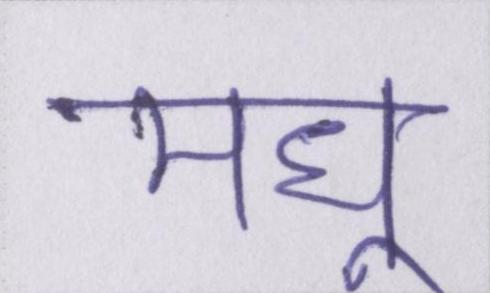 मधू